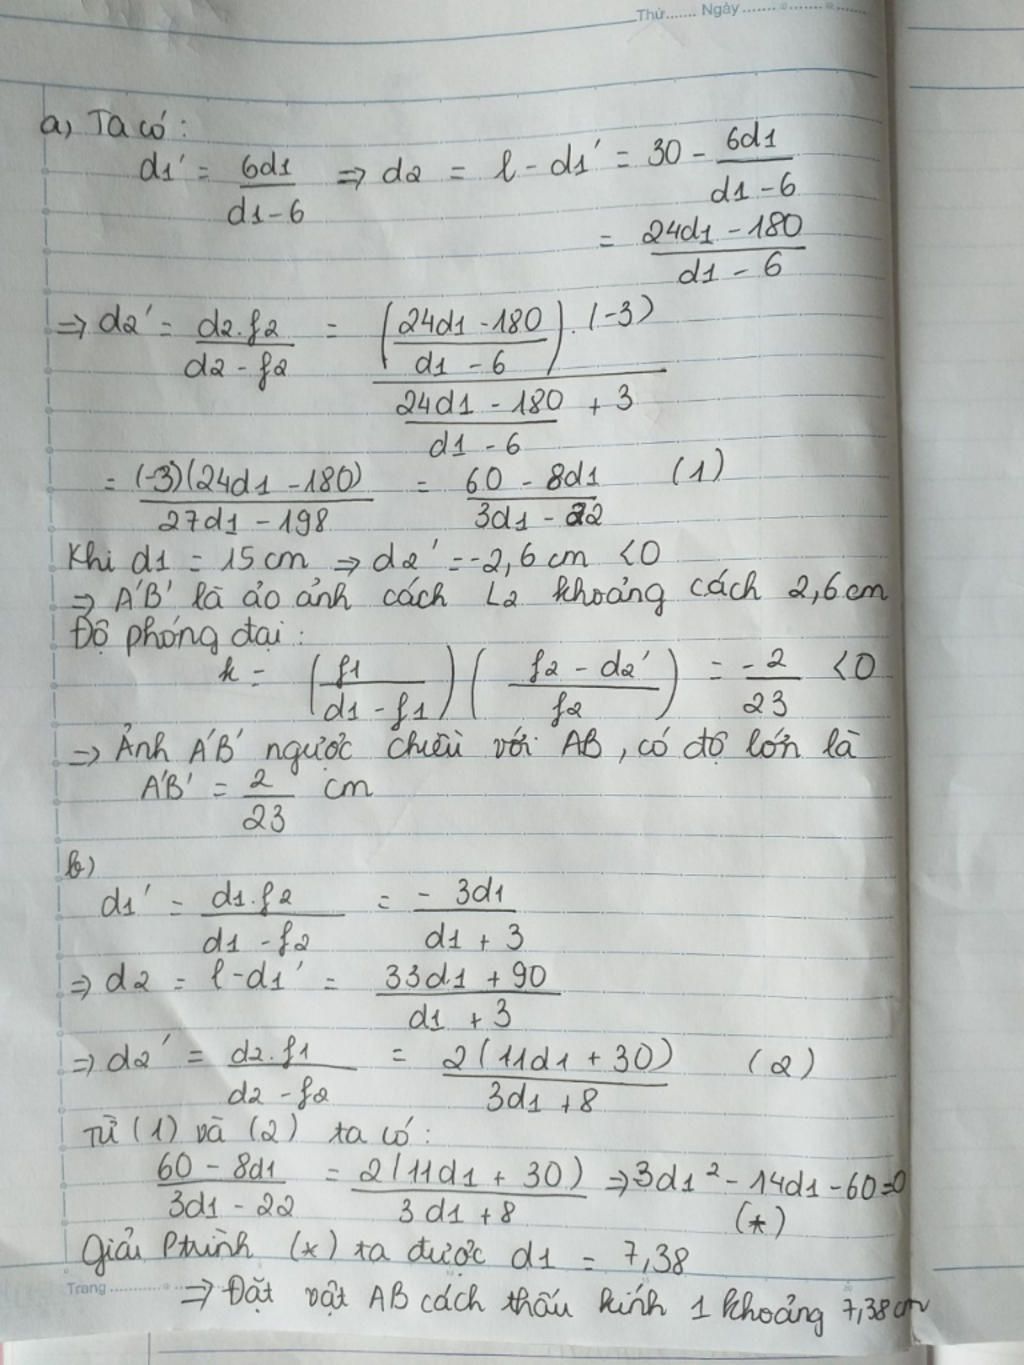 Thứ....... Ngày ....... .......
a) Ta có:
d1' = 6d1/(d1-6) ⇒ d2 = l - d1' = 30 - 6d1/(d1-6)
= (24d1 - 180)/(d1 - 6)
⇒ d2' = (d2.f2)/(d2 - f2) = (((24d1 - 180)/(d1 - 6)).(-3))/((24d1 - 180)/(d1 - 6) + 3)
= ((-3)(24d1 - 180))/(27d1 - 198) = (60 - 8d1)/(3d1 - 22) (1)
Khi d1 = 15 cm ⇒ d2' = -2,6 cm <0
⇒ A'B' là ảo ảnh cách L2 khoảng cách 2,6cm
Độ phóng đại:
k = (f1/(d1 - f1))((f2 - d2')/f2) = -2/23 <0
⇒ Ảnh A'B' ngược chiều với AB, có độ lớn là
A'B' = 2/23 cm
b)
d1' = (d1.f2)/(d1 - f2) = - 3d1/(d1 + 3)
⇒ d2 = l - d1' = (33d1 + 90)/(d1 + 3)
⇒ d2' = (d2.f1)/(d2 - f2) = 2(11d1 + 30)/(3d1 + 8) (2)
Từ (1) và (2) ta có:
(60 - 8d1)/(3d1 - 22) = 2(11d1 + 30)/(3d1 + 8) ⇒ 3d1² - 14d1 - 60 = 0
(*)
Giải Ptrình (*) ta được d1 = 7,38
Trang ............ ⇒ Đặt vật AB cách thấu kính 1 khoảng 7,38cm